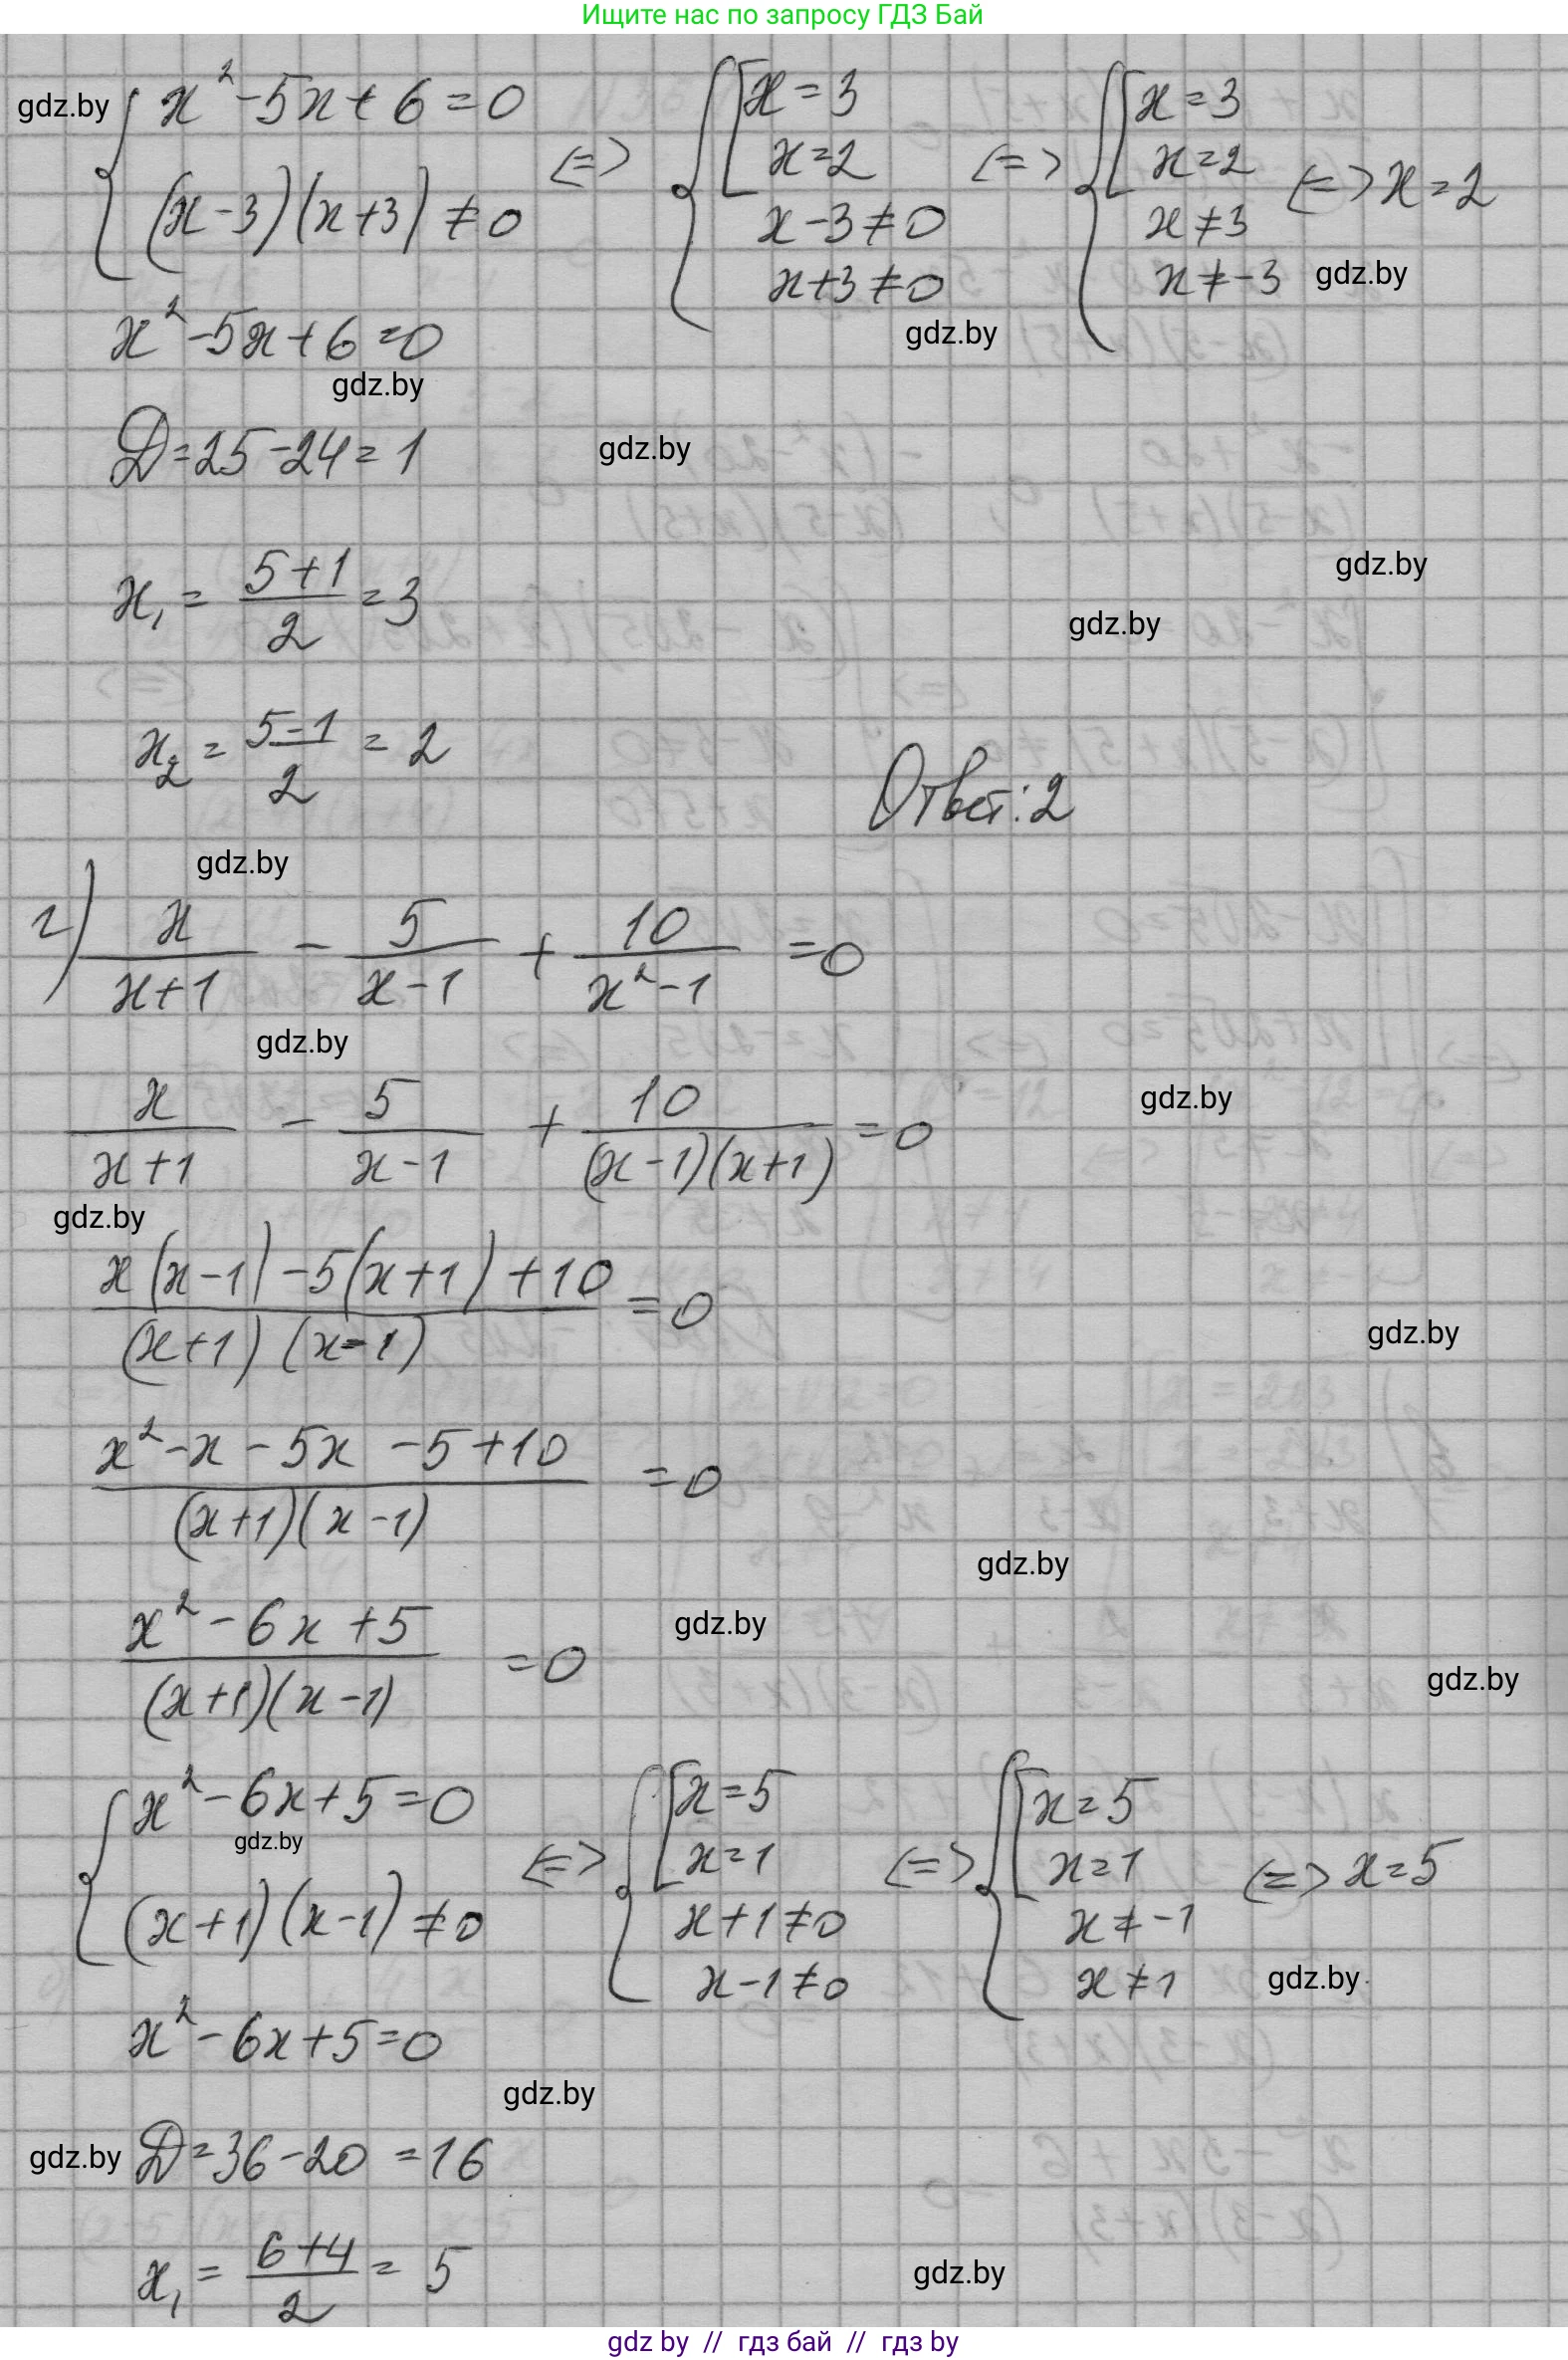 Ищите нас по запросу ГДЗ Бай
gdz.by
x² - 5x + 6 = 0 <=> x = 3 <=> x = 3
x = 2 x = 2
(x - 3)(x + 3) ≠ 0 x - 3 ≠ 0 x ≠ 3 <=> x = 2
x + 3 ≠ 0 x ≠ -3 gdz.by
gdz.by
x² - 5x + 6 = 0
gdz.by
D = 25 - 24 = 1 gdz.by
gdz.by
x₁ = (5 + 1)/2 = 3 gdz.by
x₂ = (5 - 1)/2 = 2
Ответ: 2
gdz.by
г) x/(x + 1) - 5/(x - 1) + 10/(x² - 1) = 0
gdz.by
x/(x + 1) - 5/(x - 1) + 10/((x - 1)(x + 1)) = 0 gdz.by
gdz.by
(x(x - 1) - 5(x + 1) + 10)/((x + 1)(x - 1)) = 0
gdz.by
(x² - x - 5x - 5 + 10)/((x + 1)(x - 1)) = 0
gdz.by
(x² - 6x + 5)/((x + 1)(x - 1)) = 0 gdz.by
gdz.by
x² - 6x + 5 = 0 <=> x = 5 <=> x = 5
gdz.by
x = 1 x = 1 <=> x = 5
(x + 1)(x - 1) ≠ 0 x + 1 ≠ 0 x ≠ -1
x - 1 ≠ 0 x ≠ 1 gdz.by
x² - 6x + 5 = 0
gdz.by
gdz.by D = 36 - 20 = 16
x₁ = (6 + 4)/2 = 5 gdz.by
gdz by // гдз бай // гдз by